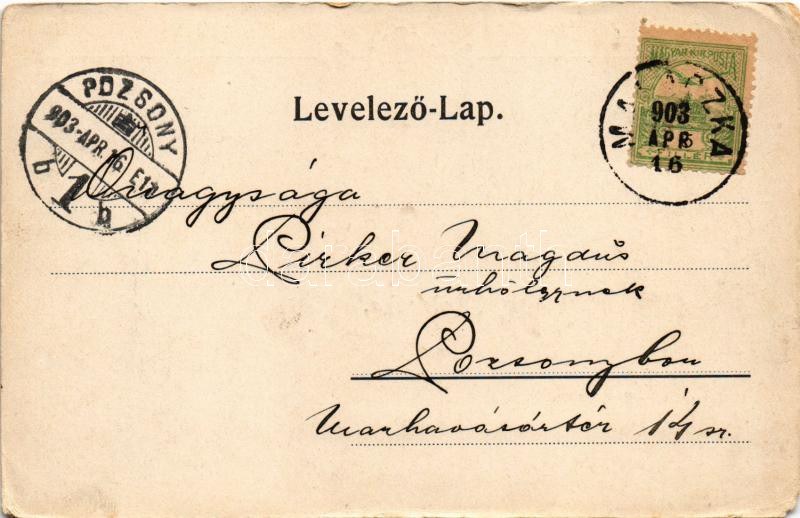 Levelező-Lap.
POZSONY
903-APR.16.E1
b 1 b
903
APR
16
MAGYAR KIR. POSTA
FILLÉR
Őnagysága
Pirker Magdus
úrhölgynek
Pozsonyban
Marhavásártér 14 sz.